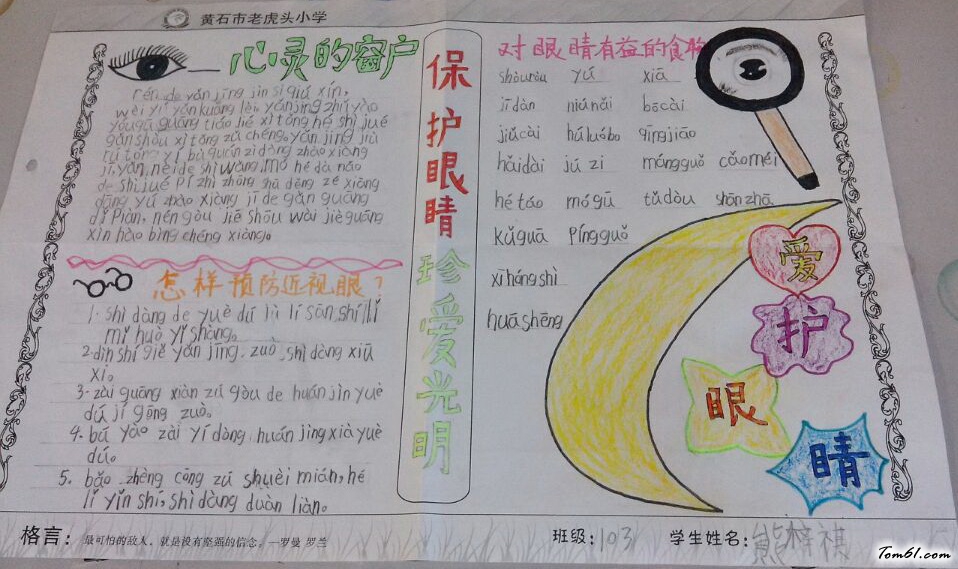 黄石市老虎头小学
心灵的窗户
rén de yǎn jīng jìn sì qiú xíng,
wèi yí yǎn kuàng lèi, yǎn jīng zhǔ yào
yóu qū guāng tiáo hé xì tǒng hé shì jué
gǎn shòu xì tǒng zǔ chéng。yǎn jīng jiù
rú tóng yí bù quán zì dòng zhào xiàng
jī, yǎn nèi de shì wǎng mó hé dà nǎo
de shì jué pí zhì zhōng shū děng zé xiāng
dāng yú zhào xiàng jī de gǎn guāng
dǐ piàn, néng gòu jiē shōu wài jiè guāng
xìn hào bìng chéng xiàng。
怎样预防近视眼?
1. shì dàng de yuè dú jù lí sān shí lí
mǐ huò yǐ shàng。
2. dìn shí giě yǎn jīng, zuò shì dàng xiū
xi。
3. zài guāng xiàn zú gòu de huán jìn yuè
dú jí gōng zuò。
4. bú yào zài yí dòng huán jìng xià yuè
dú。
5. bǎo zhèng cōng zú shuèi mián, hé
lǐ yǐn shí, shì dàng duàn liàn。
保护眼睛珍爱光明
对眼睛有益的食物
shòu ròu yú xiā
jī dàn niú nǎi bō cài
jiǔ cài hú luó bo qīng jiāo
hǎi dài jú zi máng guǒ cǎo méi
hé táo mó gū tǔ dòu shān zhā
kǔ guā píng guǒ
xī hóng shì
huā shēng
爱
护
眼
睛
格言: 最可怕的敌人,就是没有坚强的信念。—罗曼 罗兰
班级: 103 学生姓名:
Tom61.com